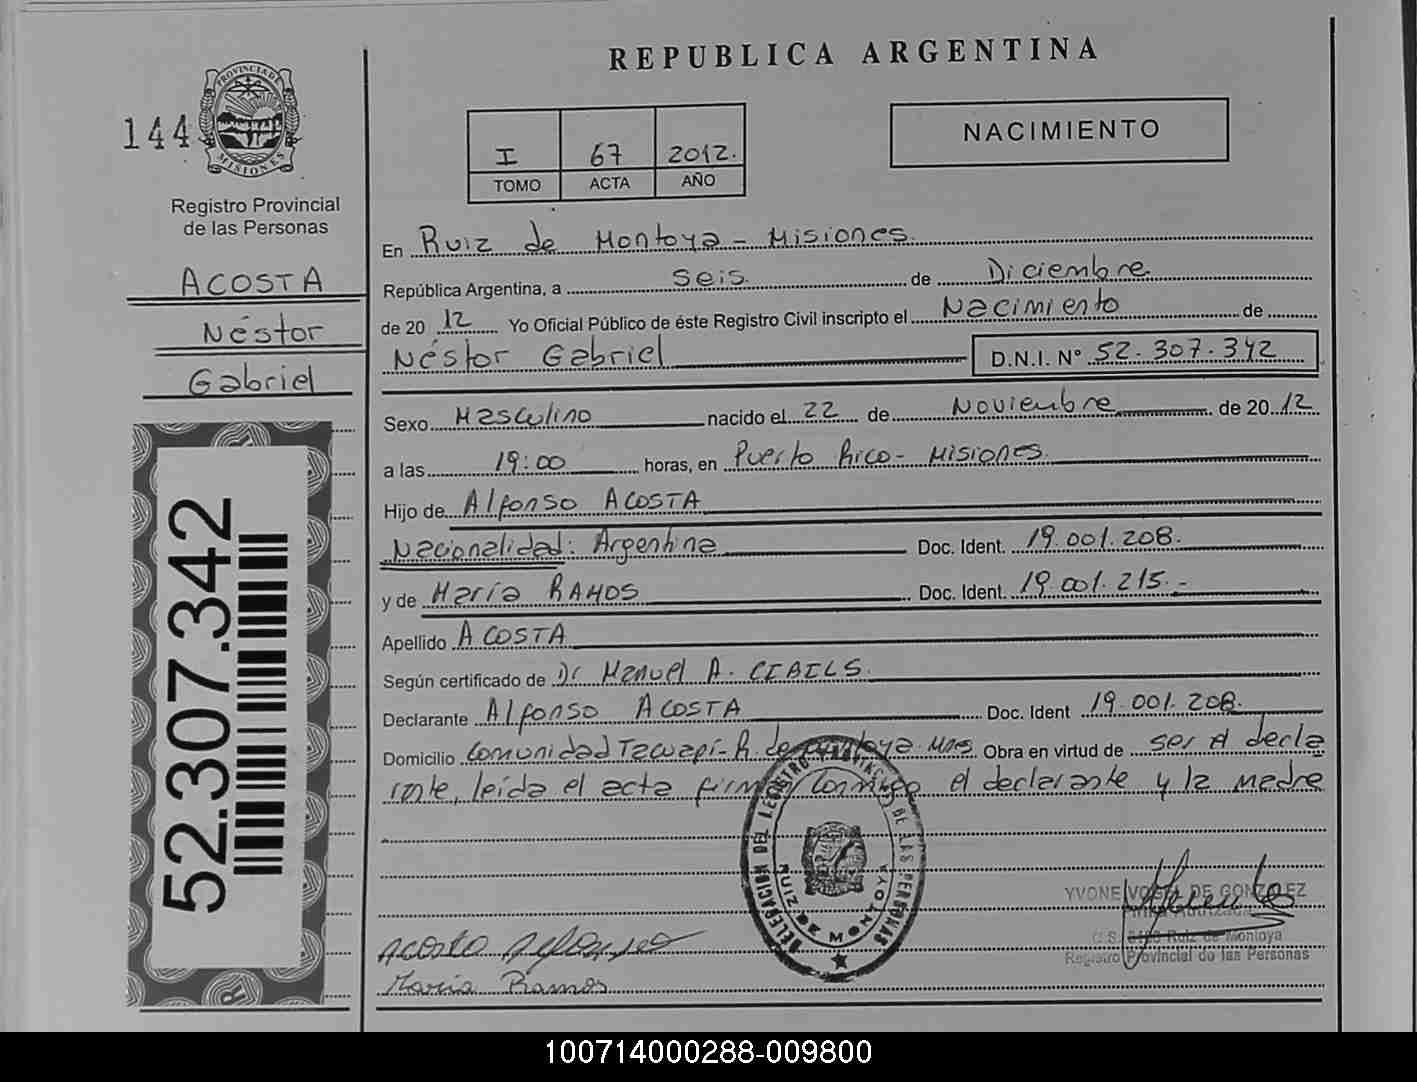 REPUBLICA ARGENTINA
144
PROVINCIA DE MISIONES
Registro Provincial
de las Personas
ACOSTA
Néstor
Gabriel
52.307.342
I 67 2012.
TOMO ACTA AÑO
NACIMIENTO
En Ruiz de Montoya - Misiones.
República Argentina, a seis. de Diciembre
de 2012 Yo Oficial Público de éste Registro Civil inscripto el Nacimiento de
Néstor Gabriel D.N.I. Nº 52.307.342
Sexo Masculino nacido el 22 de Noviembre de 2012
a las 19:00 horas, en Puerto Rico - Misiones.
Hijo de Alfonso ACOSTA
Nacionalidad: Argentina Doc. Ident. 19.001.208.
y de María RAMOS Doc. Ident. 19.001.215.-
Apellido ACOSTA
Según certificado de Dr Manuel A. CIBILS.
Declarante Alfonso ACOSTA Doc. Ident 19.001.208.
Domicilio Comunidad Tacuapí - R. de Montoya. Mnes. Obra en virtud de ser el decla
rante, leída el acta firma conmigo el declarante y la madre
DELEGACION DEL REGISTRO PROVINCIAL DE LAS PERSONAS
RUIZ DE MONTOYA
YVONE DE GONZALEZ
Ruiz de Montoya
Registro Provincial de las Personas
Acosta Alfonso
María Ramos
100714000288-009800